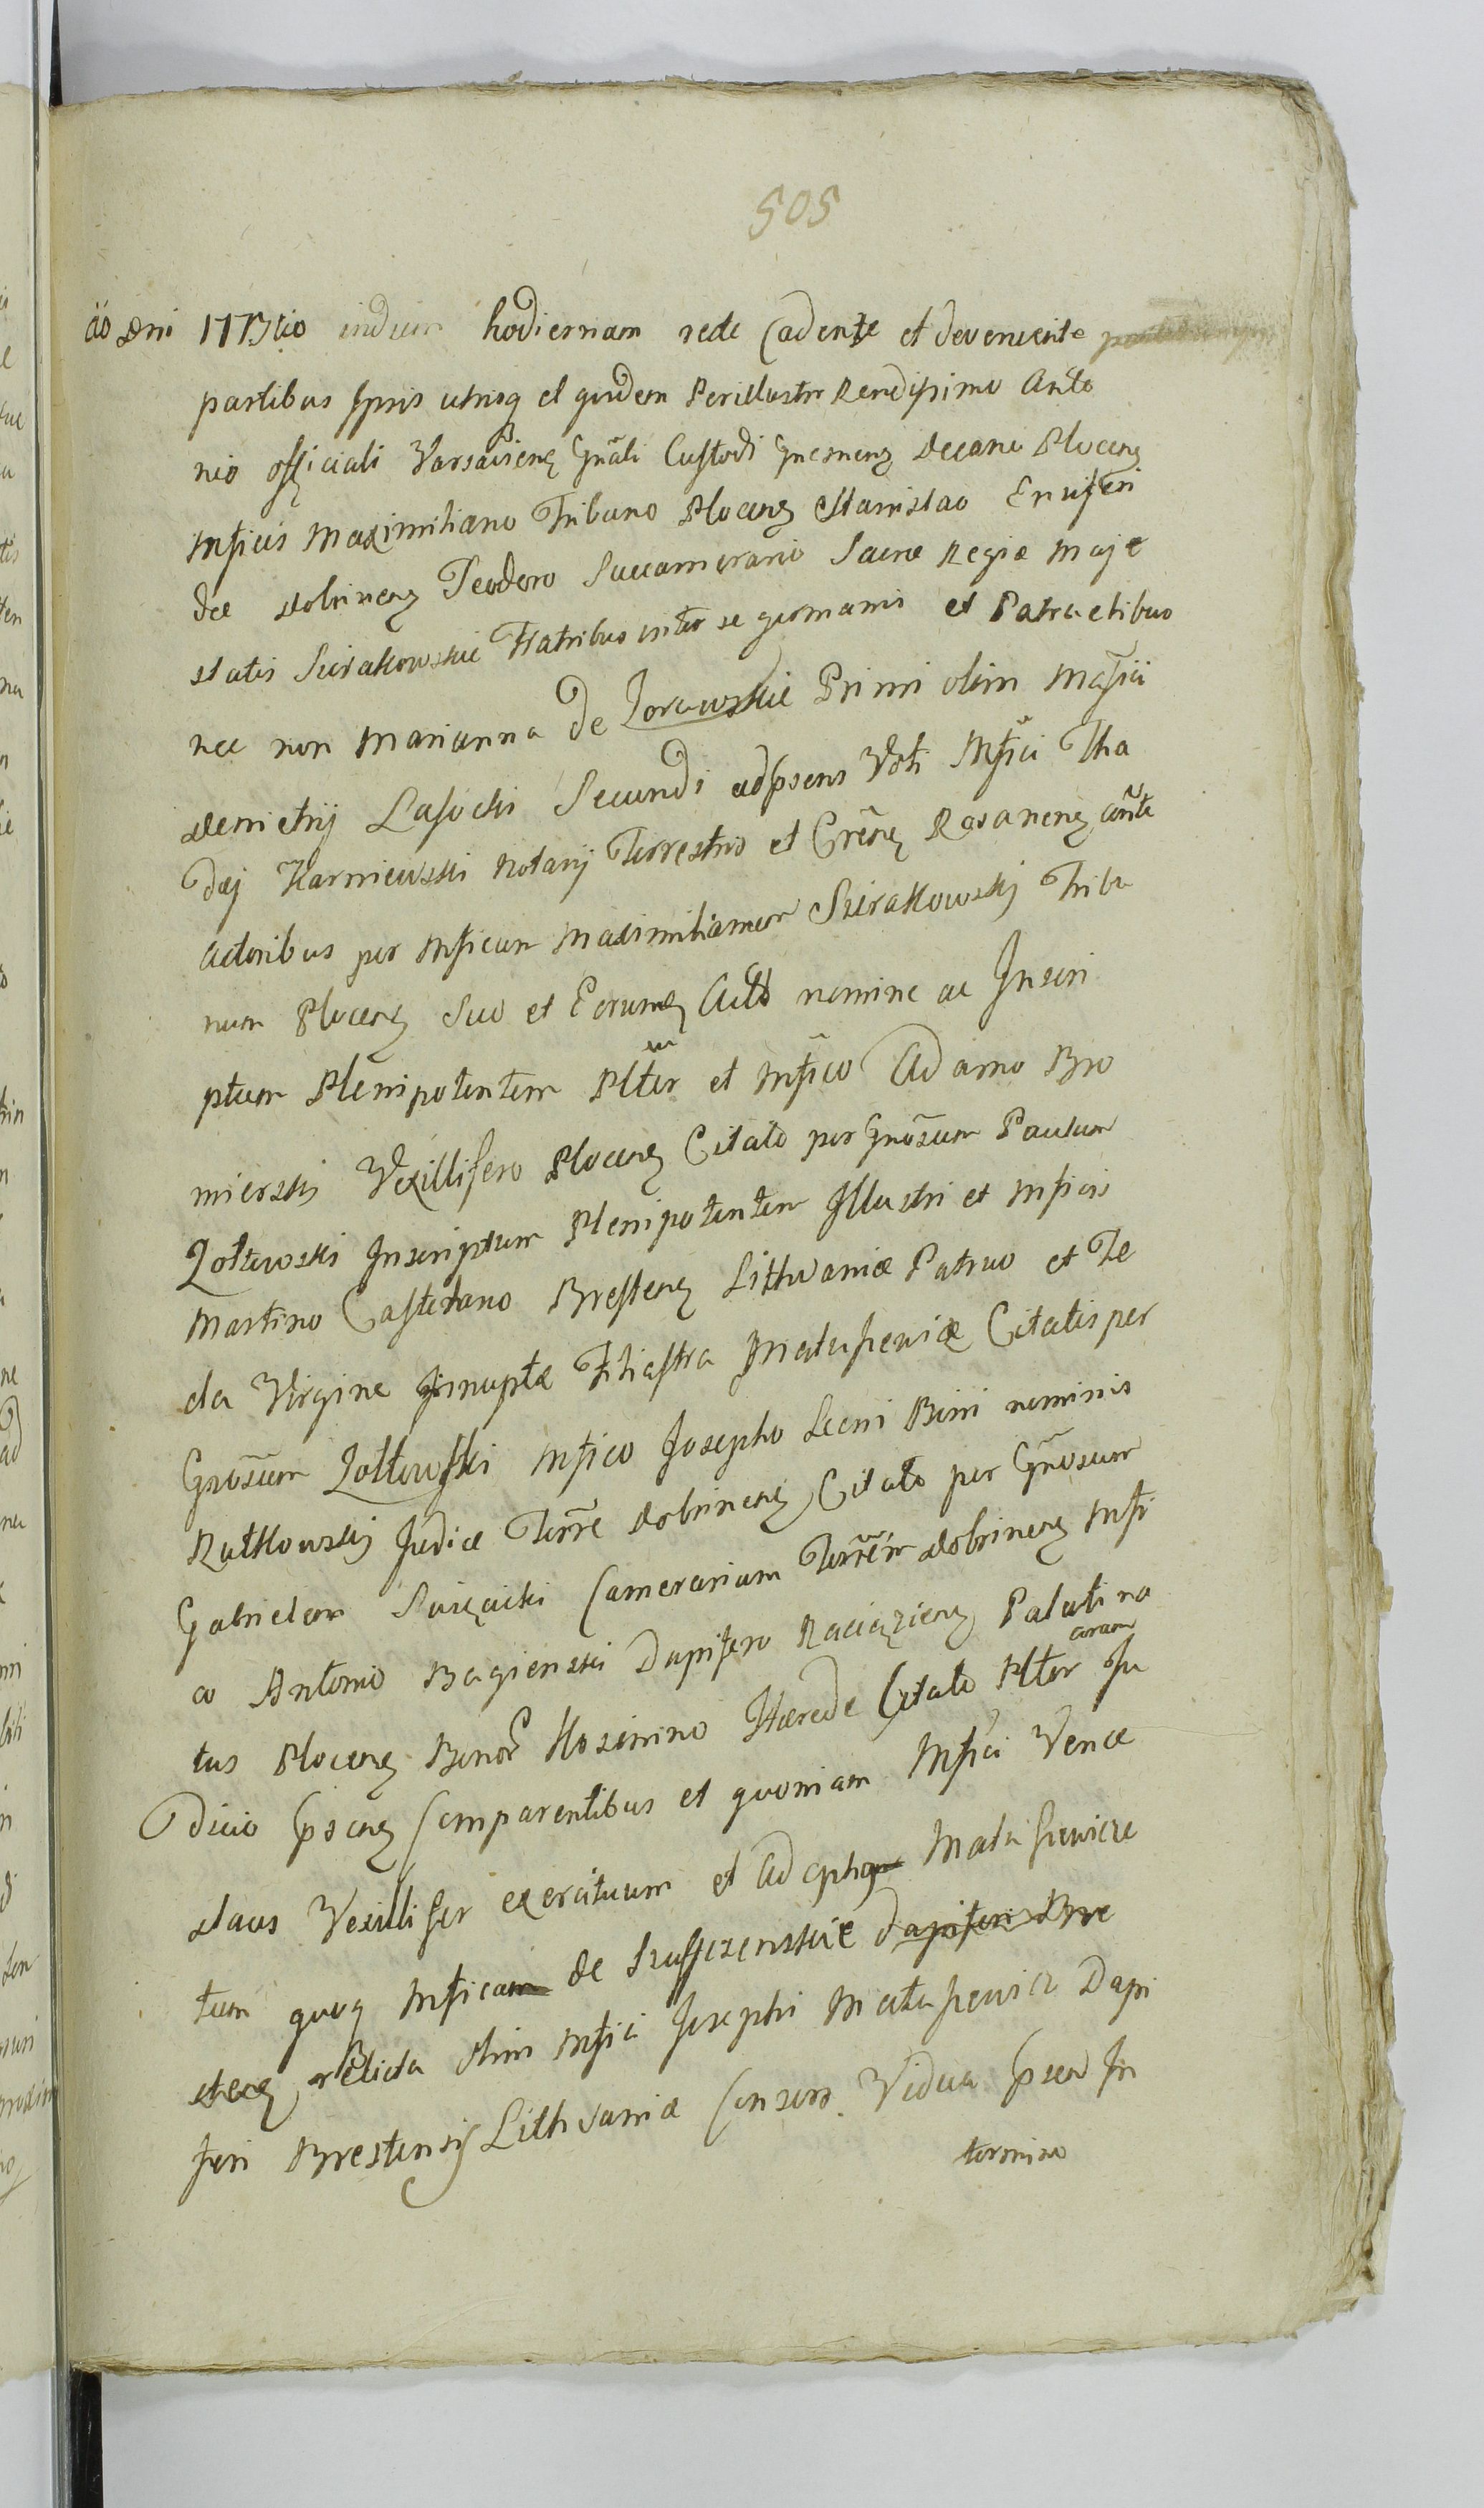 505
ao Dni 177 tio indicum hodiernam rede Cadente et deveniente
partibus Ipsis utrisq et quidem Perillustr Rendissimo Anto
nio officiali Varsavienz Gnali Custodi Gnesnenz Decano Plocenz
Mficis Maximiliano Tribuno Plocenz Stanislao Ensiferi
dae Dobrinenz Teodoro Succamerario Sacrae Regiae Maje
statis Sierakowskie Fratribus inter se germanis et Patruelibus
nec non Marianna de Zorawskie Primi olim Mfici
Demetrij Lasocki Secundi adpsens Voti Mfici Tha
daej Karniewski Notarij Terrestris et Crenz Rozanenz
Actoribus per Mficum Maximilianum Sierakowskj Tribu
num Plocenz Suo et Eorumz Actt nomine ac Inscri
ptum Plenipotentem Pltter et Mfico Adamo Bro
mierskj Vexillifero Plocenz Citato per Gnosum Paulum
Zoltowski Inscriptum Plenipotentem Illustri et Mficis
Martino Castelano Brestenz Lithvaniae Patruo et Te
cla Virgine Innupta Filiastra Matusewicz Citatis per
Gnosum Zoltowski Mfico Josepho Leoni Bini nominis
Rutkowskj Judice Terre Dobrinenz Citato per Gnosum
Gabrielem Camerarium Terrem Dobrinenz Mfi
co Antonio Bagienski Dapifero Raciązienz Palati na
coram
tus Plocenz Bonor Kosinino Haerede Citato Pltter Ju
dicio Comparentibus et quoniam Mfici Vence
slaus Vexillifer exercituum et Matusewicze
tum quoq Mficam de dapiferi Bre
stenz relicta olim Mfici Josephi Matusewicz Dapi
feri Brestensis Lithvaniae Consors Vidua In
termino